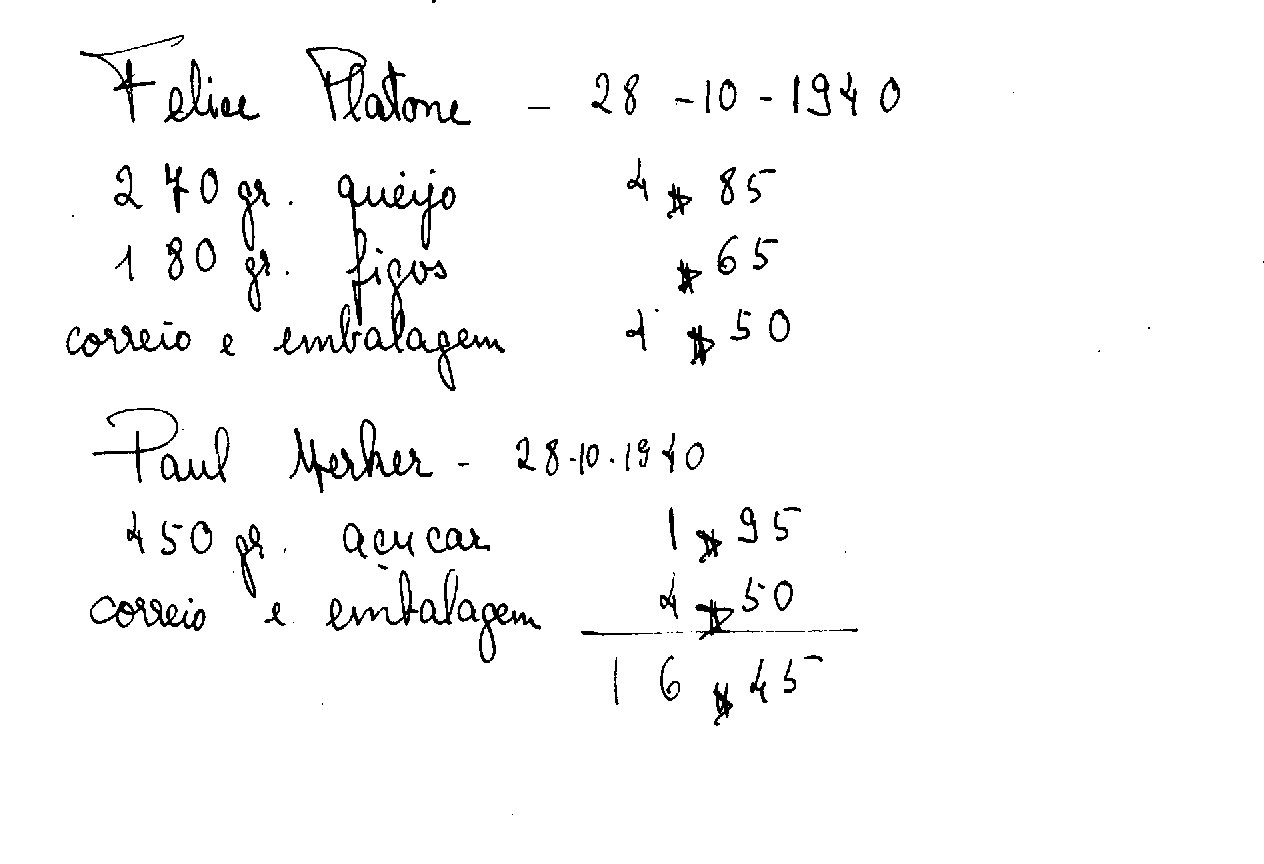 Felice Platone - 28-10-1940
270 gr. queijo 4$85
180 gr. figos $65
correio e embalagem 4$50
Paul Merker - 28.10.1940
450 gr. açucar 1$95
correio e embalagem 4$50
16$45